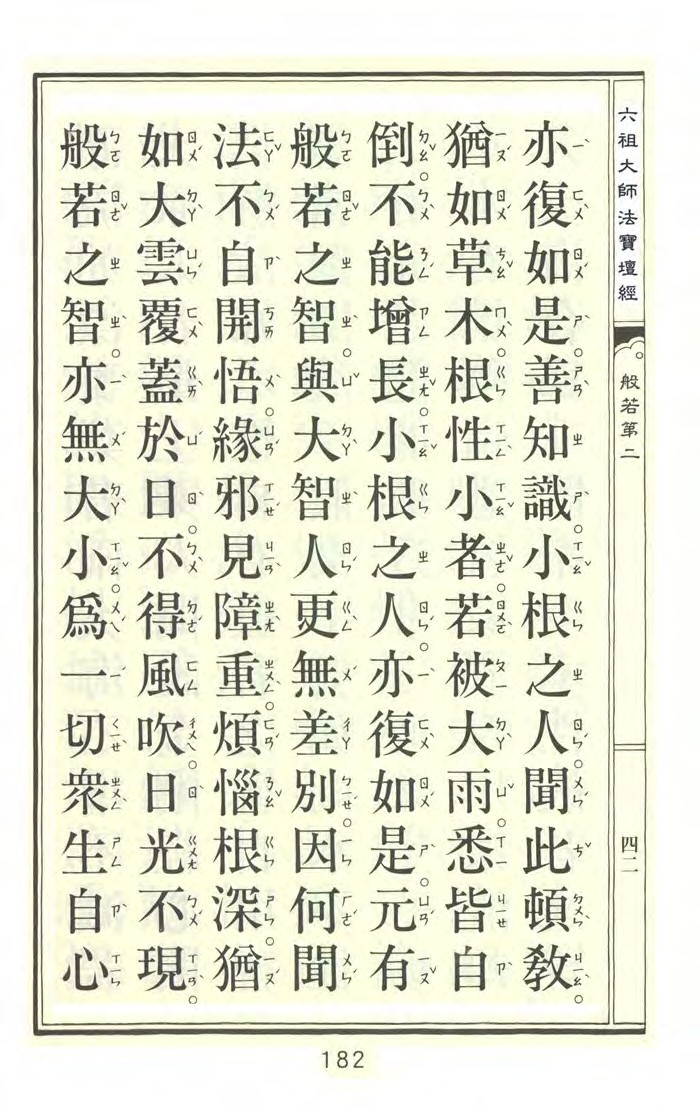 六祖大師法寶壇經
般若第二
四二
亦復如是。善知識。小根之人。聞此頓教。
猶如草木。根性小者。若被大雨。悉皆自
倒。不能增長。小根之人。亦復如是。元有
般若之智。與大智人。更無差別。因何聞
法不自開悟。緣邪見障重。煩惱根深。猶
如大雲覆蓋於日。不得風吹。日光不現。
般若之智。亦無大小。為一切眾生自心
182